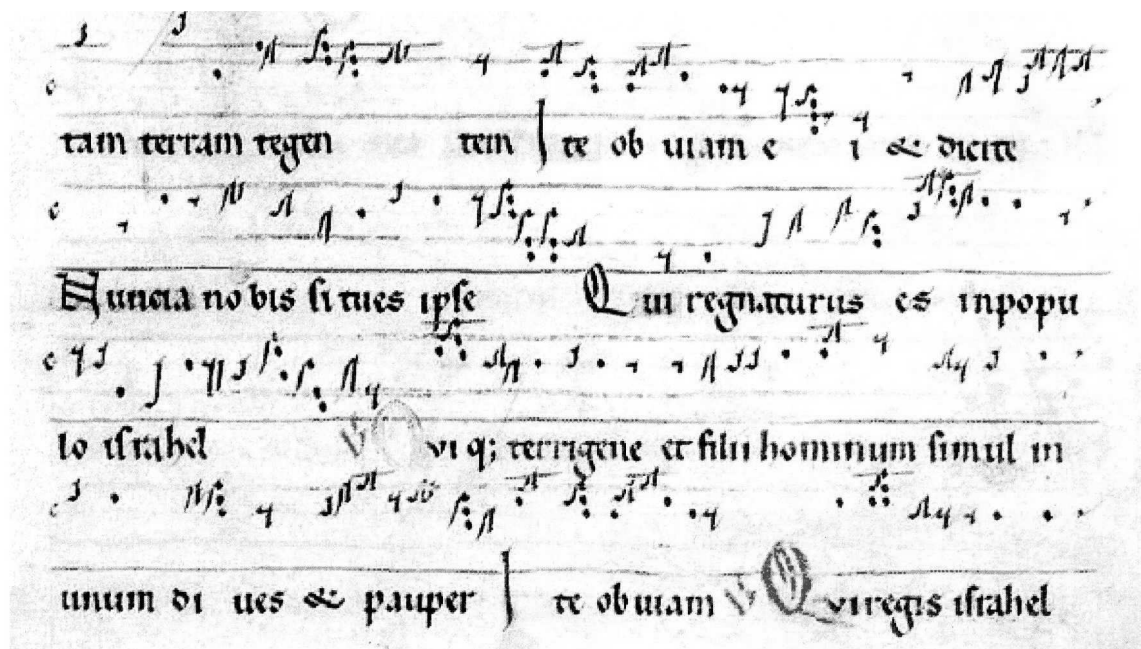 tam terram tegen tem te ob uiam e i & dicite
Nuncia nobis si tues ipse Qui regnaturus es inpopu
lo israhel V Qui q; terrigene et filii hominum simul in
unum di ues & pauper te obuiam V Qui regis israhel